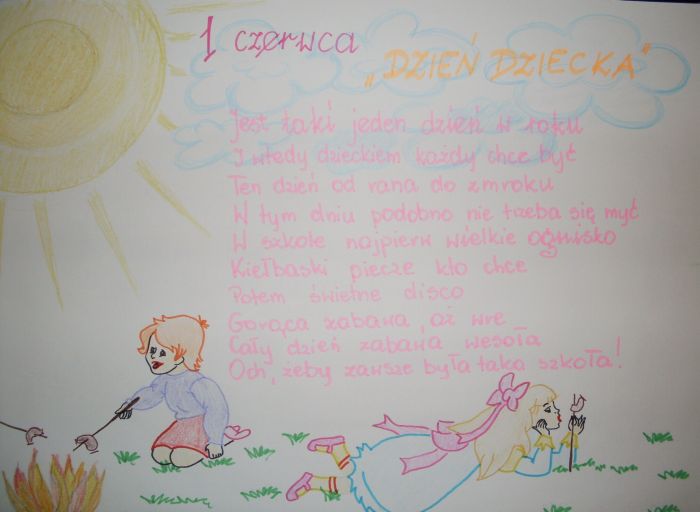 1 czerwca
„DZIEŃ DZIECKA"
Jest taki jeden dzień w roku
I wtedy dzieckiem każdy chce być
Ten dzień od rana do zmroku
W tym dniu podobno nie trzeba się myć
W szkole najpierw wielkie ognisko
Kiełbaski piecze kto chce
Potem świetne disco
Gorąca zabawa, aż wre
Cały dzień zabawa wesoła
Och, żeby zawsze była taka szkoła!